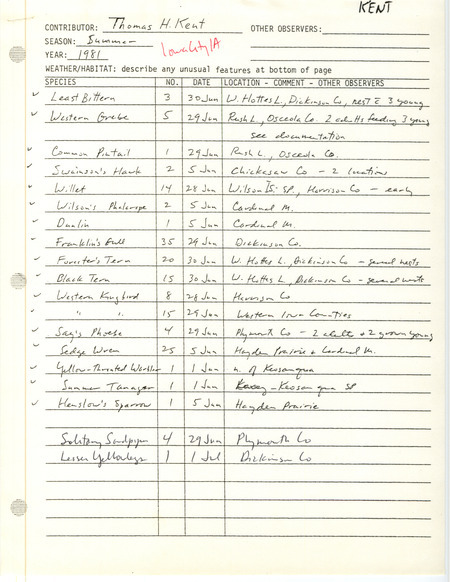 KENT
CONTRIBUTOR: Thomas H. Kent OTHER OBSERVERS:
SEASON: Summer Iowa City IA
YEAR: 1981
WEATHER/HABITAT: describe any unusual features at bottom of page
SPECIES NO. DATE LOCATION - COMMENT - OTHER OBSERVERS
Least Bittern 3 30 Jun W. Hottes L., Dickinson Co, nest c̄ 3 young
Western Grebe 5 29 Jun Rush L., Osceola Co. 2 adults feeding 3 young
see documentation
Common Pintail 1 29 Jun Rush L., Osceola Co.
Swainson's Hawk 2 5 Jun Chickasaw Co - 2 locations
Willet 14 28 Jun Wilson Is. SP, Harrison Co - early
Wilson's Phalarope 2 5 Jun Cardinal M.
Dunlin 1 5 Jun Cardinal M.
Franklin's Gull 35 29 Jun Dickinson Co.
Forster's Tern 20 30 Jun W. Hottes L., Dickinson Co - several nests
Black Tern 15 30 Jun W. Hottes L., Dickinson Co - several nests
Western Kingbird 8 28 Jun Harrison Co
" " 15 29 Jun Western Iowa Counties
Say's Phoebe 4 29 Jun Plymouth Co - 2 adults + 2 grown young
Sedge Wren 25 5 Jun Hayden Prairie + Cardinal M.
Yellow-throated Warbler 1 1 Jun n. of Keosauqua
Summer Tanager 1 1 Jun Keosauqua SP
Henslow's Sparrow 1 5 Jun Hayden Prairie
Solitary Sandpiper 4 29 Jun Plymouth Co
Lesser Yellowlegs 1 1 Jul Dickinson Co